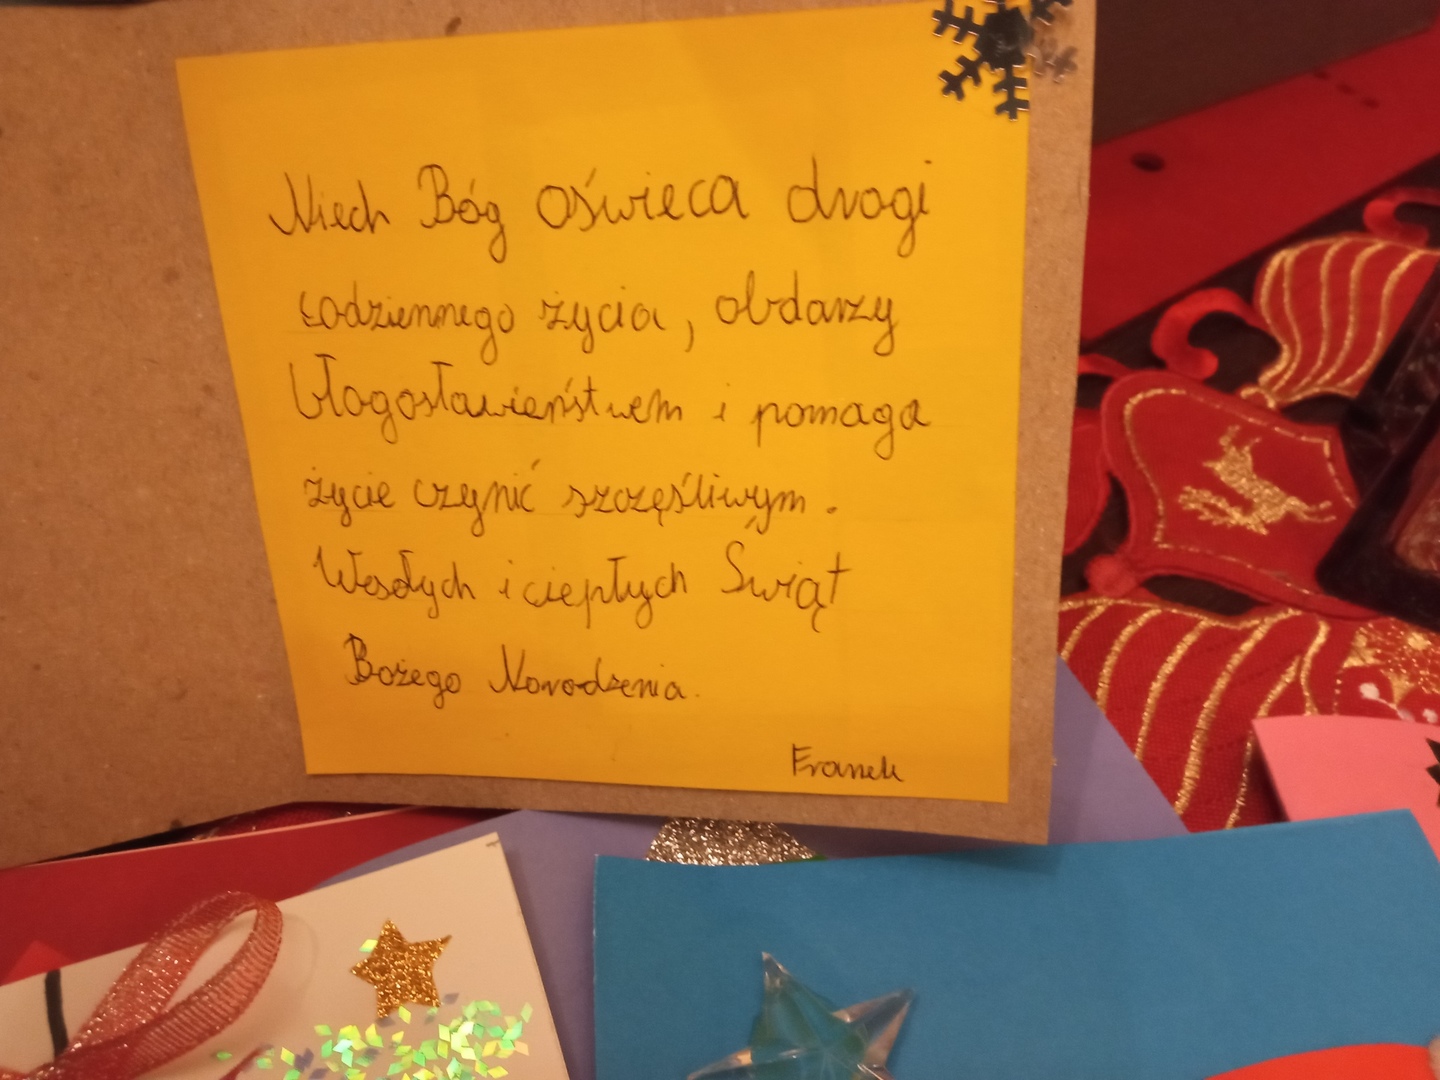 Niech Bóg oświeca drogi
codziennego życia, obdarzy
błogosławieństwem i pomaga
życie czynić szczęśliwym.
Wesołych i ciepłych Świąt
Bożego Narodzenia.
Franek